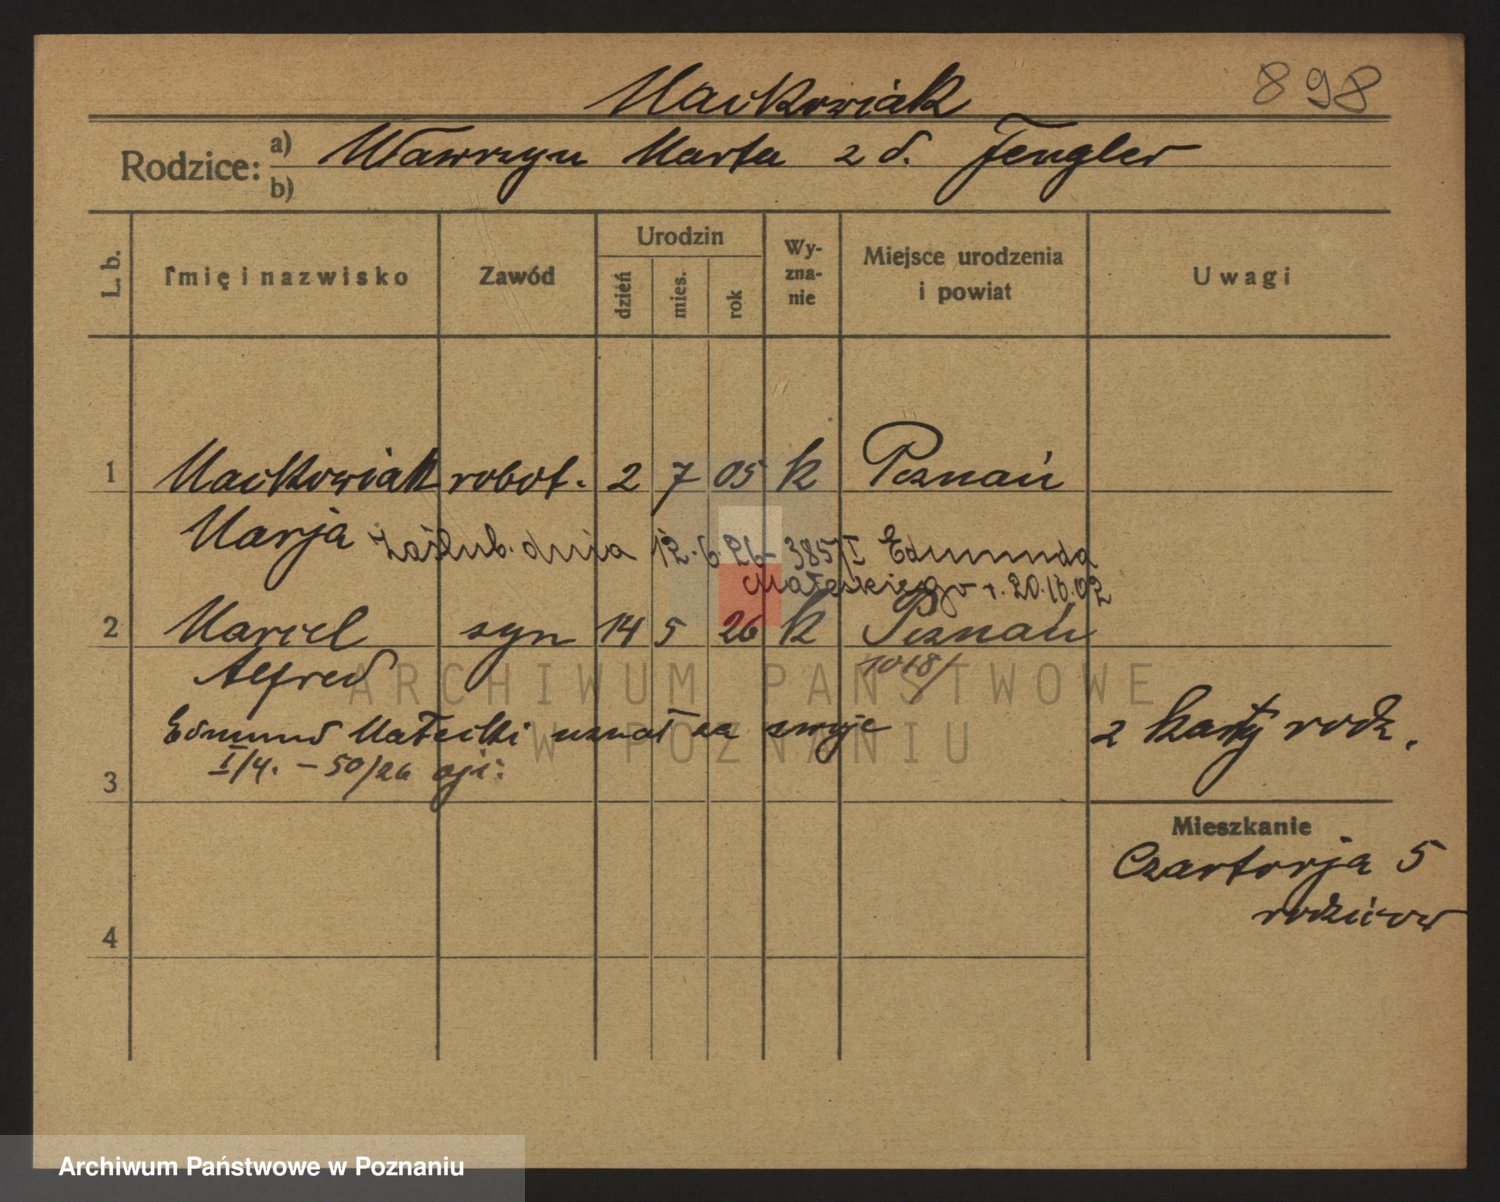 Maćkowiak
898
Rodzice: a) Wawrzyn Marta z d. Fengler
b)
L. b.
Imię i nazwisko
Zawód
Urodzin
dzień
mies.
rok
Wy-
zna-
nie
Miejsce urodzenia
i powiat
Uwagi
1 Maćkowiak robot. 2 7 05 k Poznań
Marja zaślub. dnia 12.6.26 - 385/I Edmunda
Małeckiego r. 20.10.02
2 Marcel syn 14 5 26 k Poznań
Alfred 1018/
ARCHIWUM PAŃSTWOWE
W POZNANIU
Edmund Małecki uznał za swoje
2 karty rodz.
3 I/4. - 50/26 ojc:
Mieszkanie
Czartorja 5
rodziców
4
Archiwum Państwowe w Poznaniu